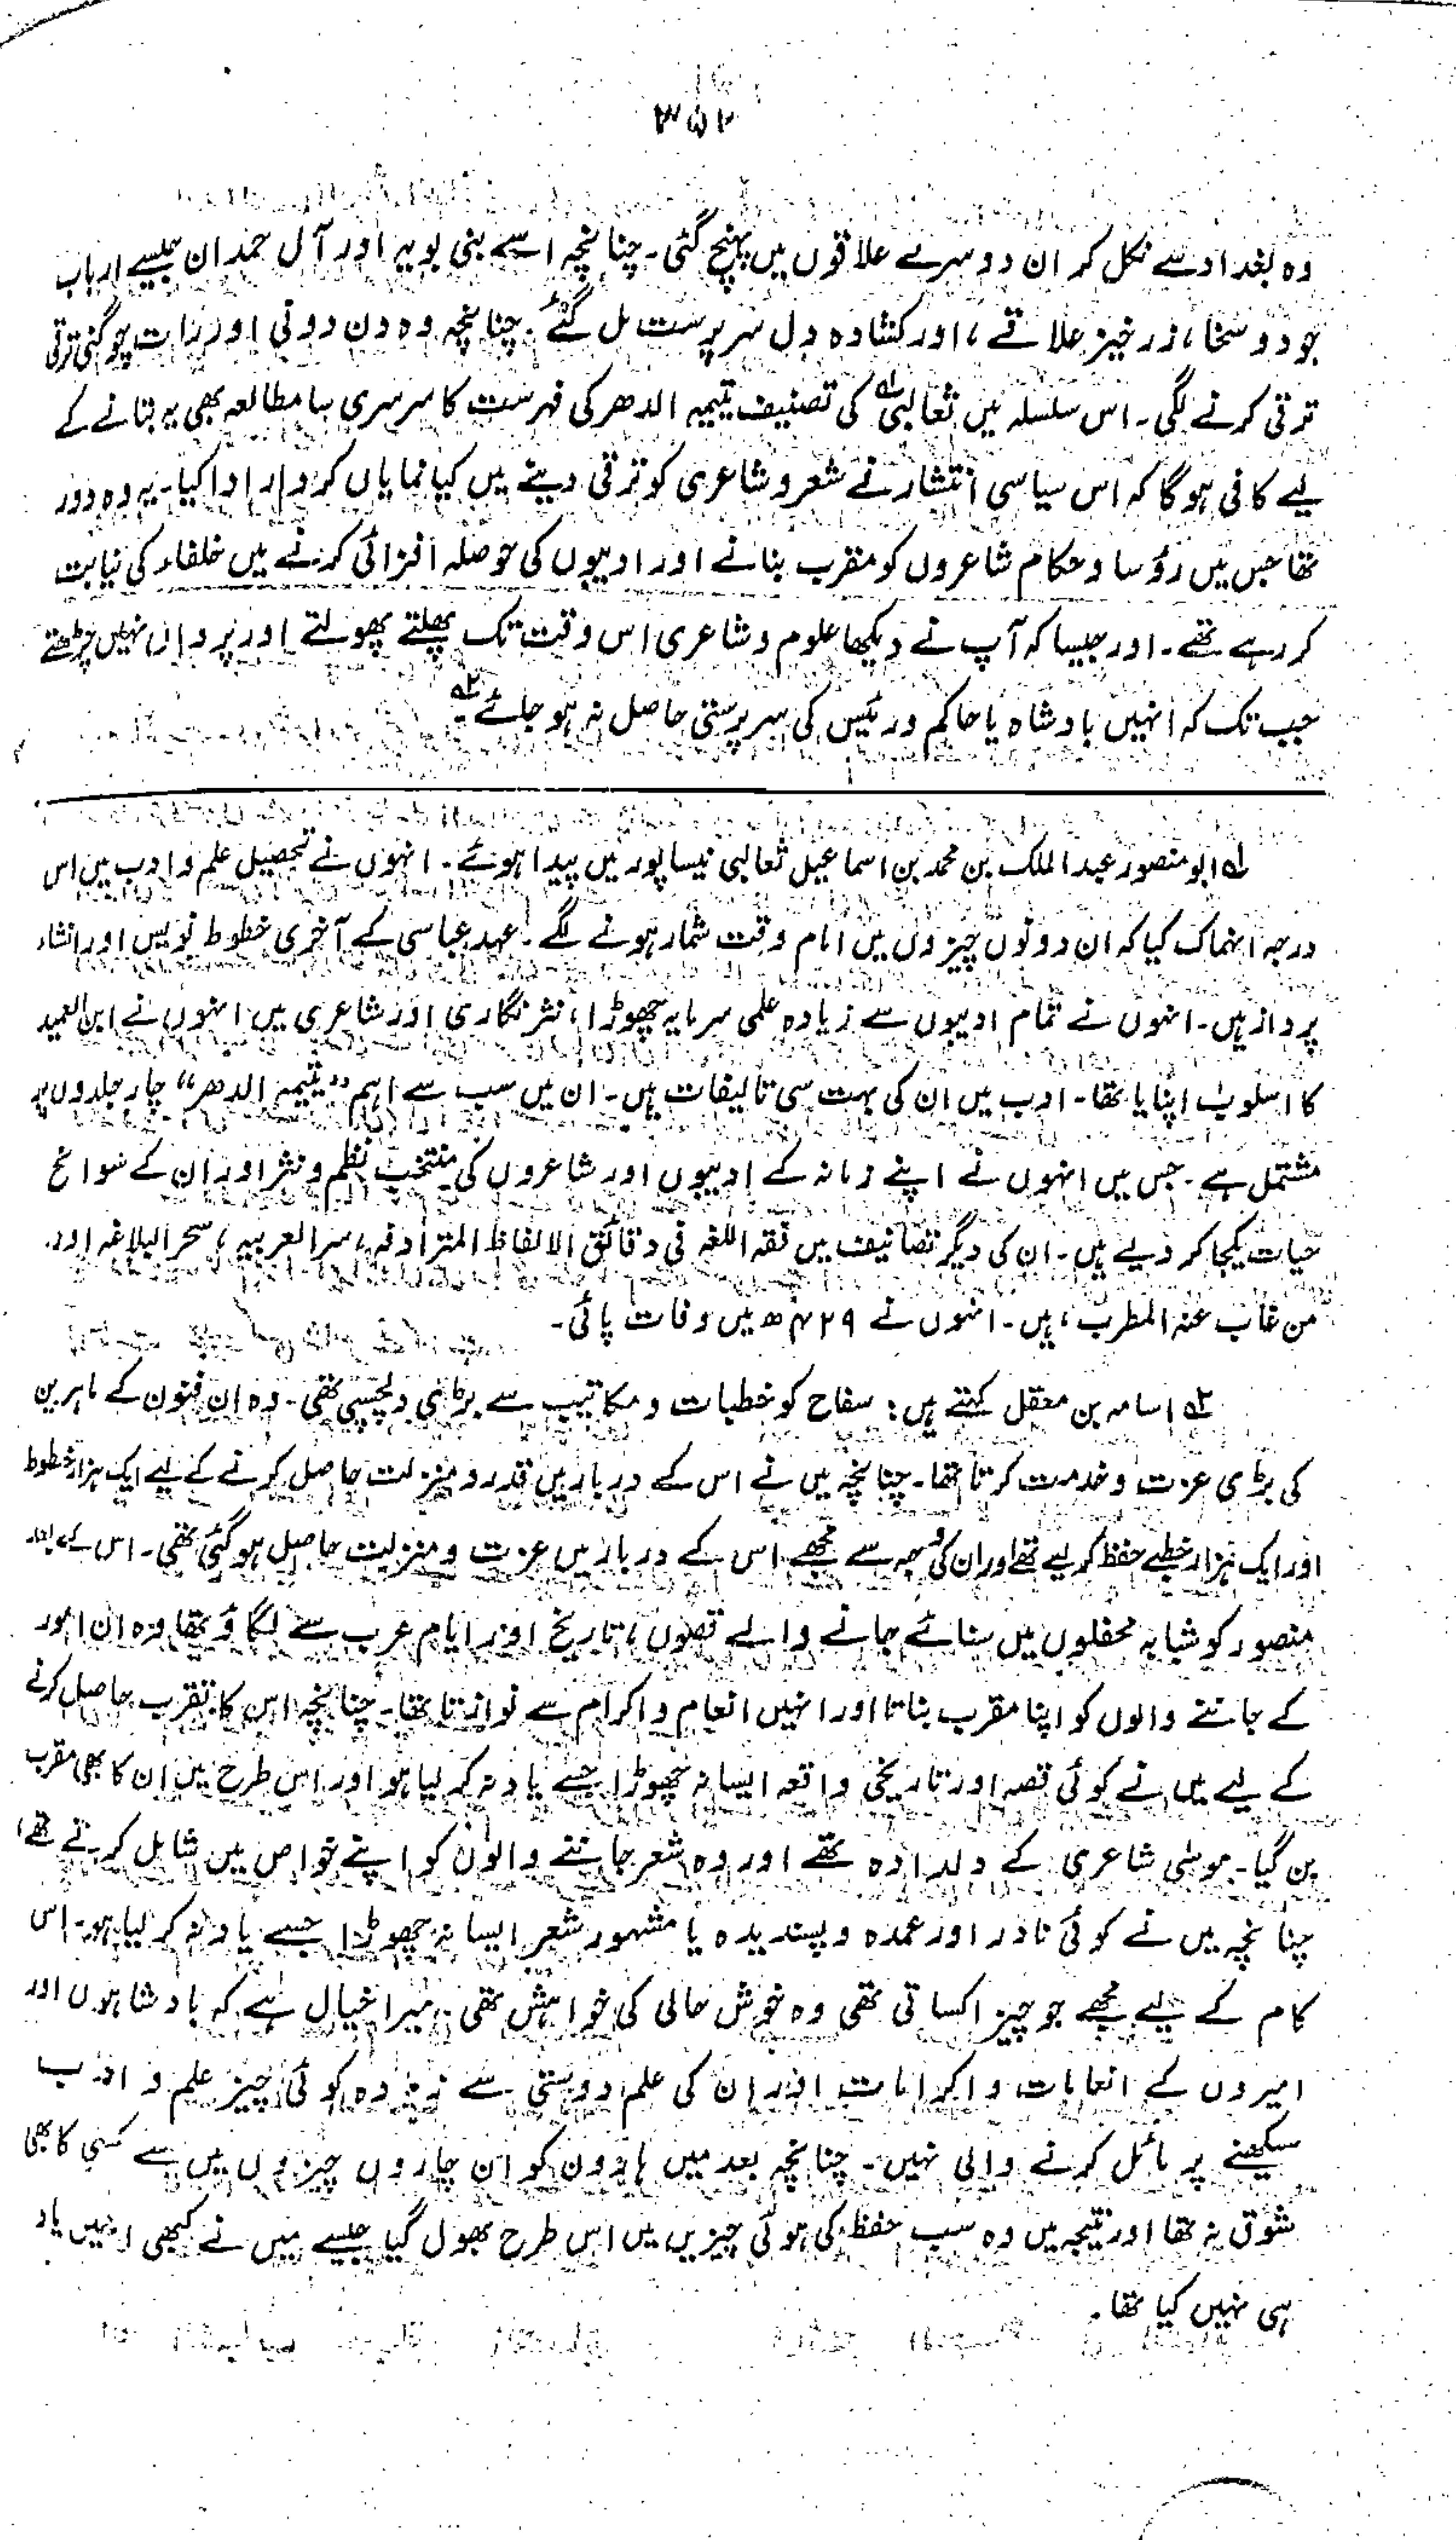 ۳۵۲
وہ بغداد سے نکل کر ان دوسرے علاقوں میں پہنچ گئی۔ چنانچہ اسے بنی بویہ اور آل حمدان جیسے ارباب
جود و سخا، زرخیز علاقے، اور کشادہ دل سرپرست مل گئے۔ چنانچہ وہ دن دونی اور رات چوگنی ترقی
ترقی کرنے لگی۔ اس سلسلہ میں ثعالبی ۱؎ کی تصنیف یتیمہ الدھر کی فہرست کا سرسری سا مطالعہ بھی یہ بتانے کے
لیے کافی ہوگا کہ اس سیاسی انتشار نے شعر و شاعری کو ترقی دینے میں کیا نمایاں کردار ادا کیا۔ یہ وہ دور
تھا جس میں رؤسا و حکام شاعروں کو مقرب بنانے اور ادیبوں کی حوصلہ افزائی کرنے میں خلفاء کی نیابت
کر رہے تھے۔ اور جیسا کہ آپ نے دیکھا علوم و شاعری اس وقت تک پھلتے پھولتے اور پروان نہیں چڑھتے
جب تک کہ انہیں بادشاہ یا حاکم و رئیس کی سرپرستی حاصل نہ ہو جائے ۲؎
۱؎ ابو منصور عبد الملک بن محمد بن اسماعیل ثعالبی نیساپور میں پیدا ہوئے۔ انہوں نے تحصیل علم و ادب میں اس
درجہ انہماک کیا کہ ان دونوں چیزوں میں امام وقت شمار ہونے لگے۔ عہد عباسی کے آخری خطوط نویس اور انشاء
پرداز ہیں۔ انہوں نے تمام ادیبوں سے زیادہ علمی سرمایہ چھوڑا، نثر نگاری اور شاعری میں انہوں نے ابن العمید
کا اسلوب اپنایا تھا۔ ادب میں ان کی بہت سی تالیفات ہیں۔ ان میں سب سے اہم "یتیمہ الدھر" چار جلدوں پر
مشتمل ہے۔ جس میں انہوں نے اپنے زمانہ کے ادیبوں اور شاعروں کی منتخب نظم و نثر اور ان کے سوانح
حیات یکجا کر دیے ہیں۔ ان کی دیگر تصانیف میں فقہ اللغہ فی دقائق الالفاظ المترادفہ، سر العربیہ، سحر البلاغہ اور
من غاب عنہ المطرب، ہیں۔ انہوں نے ۴۲۹ھ میں وفات پائی۔
۲؎ اسامہ بن معقل کہتے ہیں: سفاح کو خطبات و مکاتیب سے بڑی دلچسپی تھی۔ وہ ان فنون کے ماہرین
کی بڑی عزت و خدمت کرتا تھا۔ چنانچہ میں نے اس کے دربار میں قدر و منزلت حاصل کرنے کے لیے ایک ہزار خطوط
اور ایک ہزار خطبے حفظ کر لیے تھے اور ان کی وجہ سے مجھے اس کے دربار میں عزت و منزلت حاصل ہو گئی تھی۔ اس کے بعد
منصور کو شبانہ محفلوں میں سنائے جانے والے قصوں، تاریخ اور ایام عرب سے لگاؤ تھا وہ ان امور
کے جاننے والوں کو اپنا مقرب بناتا اور انہیں انعام و اکرام سے نوازتا تھا۔ چنانچہ اس کا تقرب حاصل کرنے
کے لیے میں نے کوئی قصہ اور تاریخی واقعہ ایسا نہ چھوڑا جسے یاد نہ کر لیا ہو اور اس طرح میں ان کا بھی مقرب
بن گیا۔ موسٰی شاعری کے دلدادہ تھے اور وہ شعر جاننے والوں کو اپنے خواص میں شامل کرتے تھے،
چنانچہ میں نے کوئی نادر اور عمدہ و پسندیدہ یا مشہور شعر ایسا نہ چھوڑا جسے یاد نہ کر لیا ہو۔ اس
کام کے لیے مجھے جو چیز اکساتی تھی وہ خوش حالی کی خواہش تھی۔ میرا خیال ہے کہ بادشاہوں اور
امیروں کے انعامات و اکرامات اور ان کی علم دوستی سے زیادہ کوئی چیز علم و ادب
سیکھنے پر مائل کرنے والی نہیں۔ چنانچہ بعد میں ہارون کو ان چاروں چیزوں میں سے کسی کا بھی
شوق نہ تھا اور نتیجہ میں وہ سب حفظ کی ہوئی چیزیں میں اس طرح بھول گیا جیسے میں نے کبھی انہیں یاد
ہی نہیں کیا تھا۔